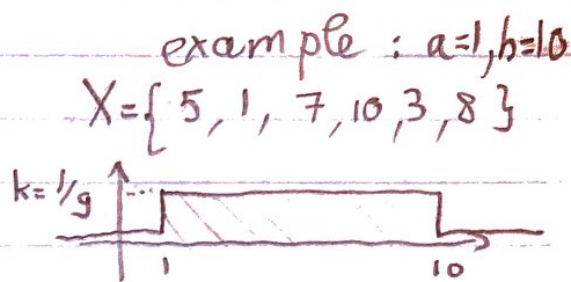 example : a=1, b=10
X={ 5, 1, 7, 10, 3, 8 }
k=1/9
1 10